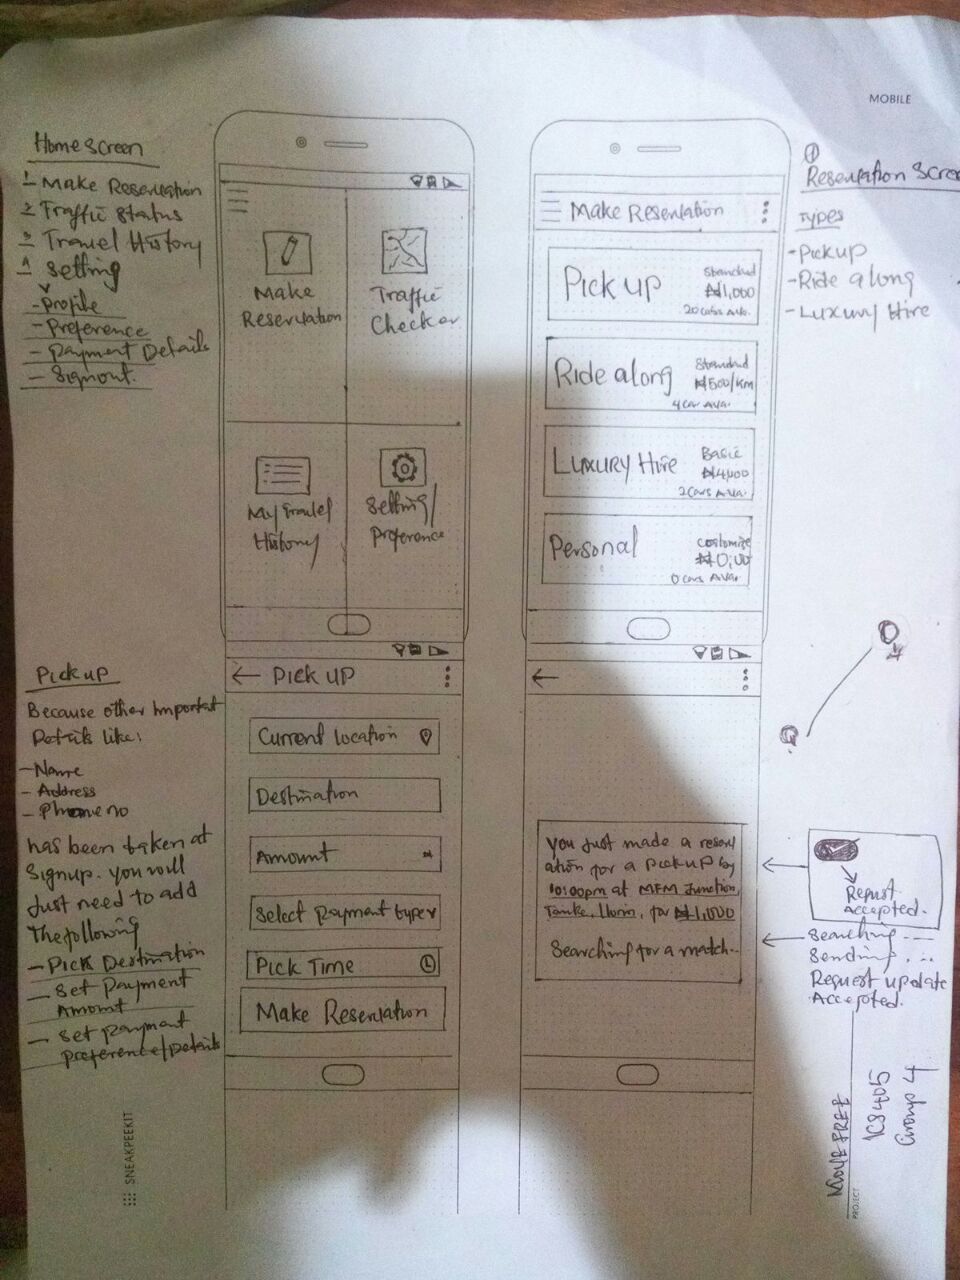 MOBILE
Home Screen
1 Make Reservation
2 Traffic Status
3 Travel History
4 Setting
- Profile
- Preference
- Payment Details
- Signout.
Make
Reservation
Traffic
Checker
My Travel
History
Setting/
Preference
Make Reservation
Pick up
Standard
₦1,000
20 Cars Ava.
Ride along
Standard
₦500/km
4 Car Ava.
Luxury Hire
Basic
₦4,000
2 Cars Ava.
Personal
Costomize
₦0,00
0 Cars Ava.
1
Reservation Scree
Types
- Pick up
- Ride along
- Luxury Hire
Pick up
Because other Important
Details like:
- Name
- Address
- Phone no
has been taken at
Signup. you will
Just need to add
The following
- Pick Destination
- Set Payment
Amount
- Set payment
preference/Details
Pick up
Current location
Destination
Amount
Select payment type
Pick Time
Make Reservation
You Just made a reserv
ation for a Pick up by
10:00pm at MFM Junction,
Tanke, Ilorin, for ₦1,000
Searching for a match..
Request
Accepted.
Searching ----
Sending ...
Request update
Accepted.
SNEAKPEEKIT
MOVE FREE
PROJECT
ICS405
Group 4